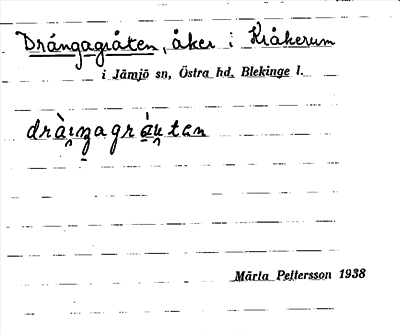 Drängagråten, åker i Kråkerum
i Jämjö sn, Östra hd, Blekinge l.
dràı̯ŋagràu̯tɘn
Märta Pettersson 1938